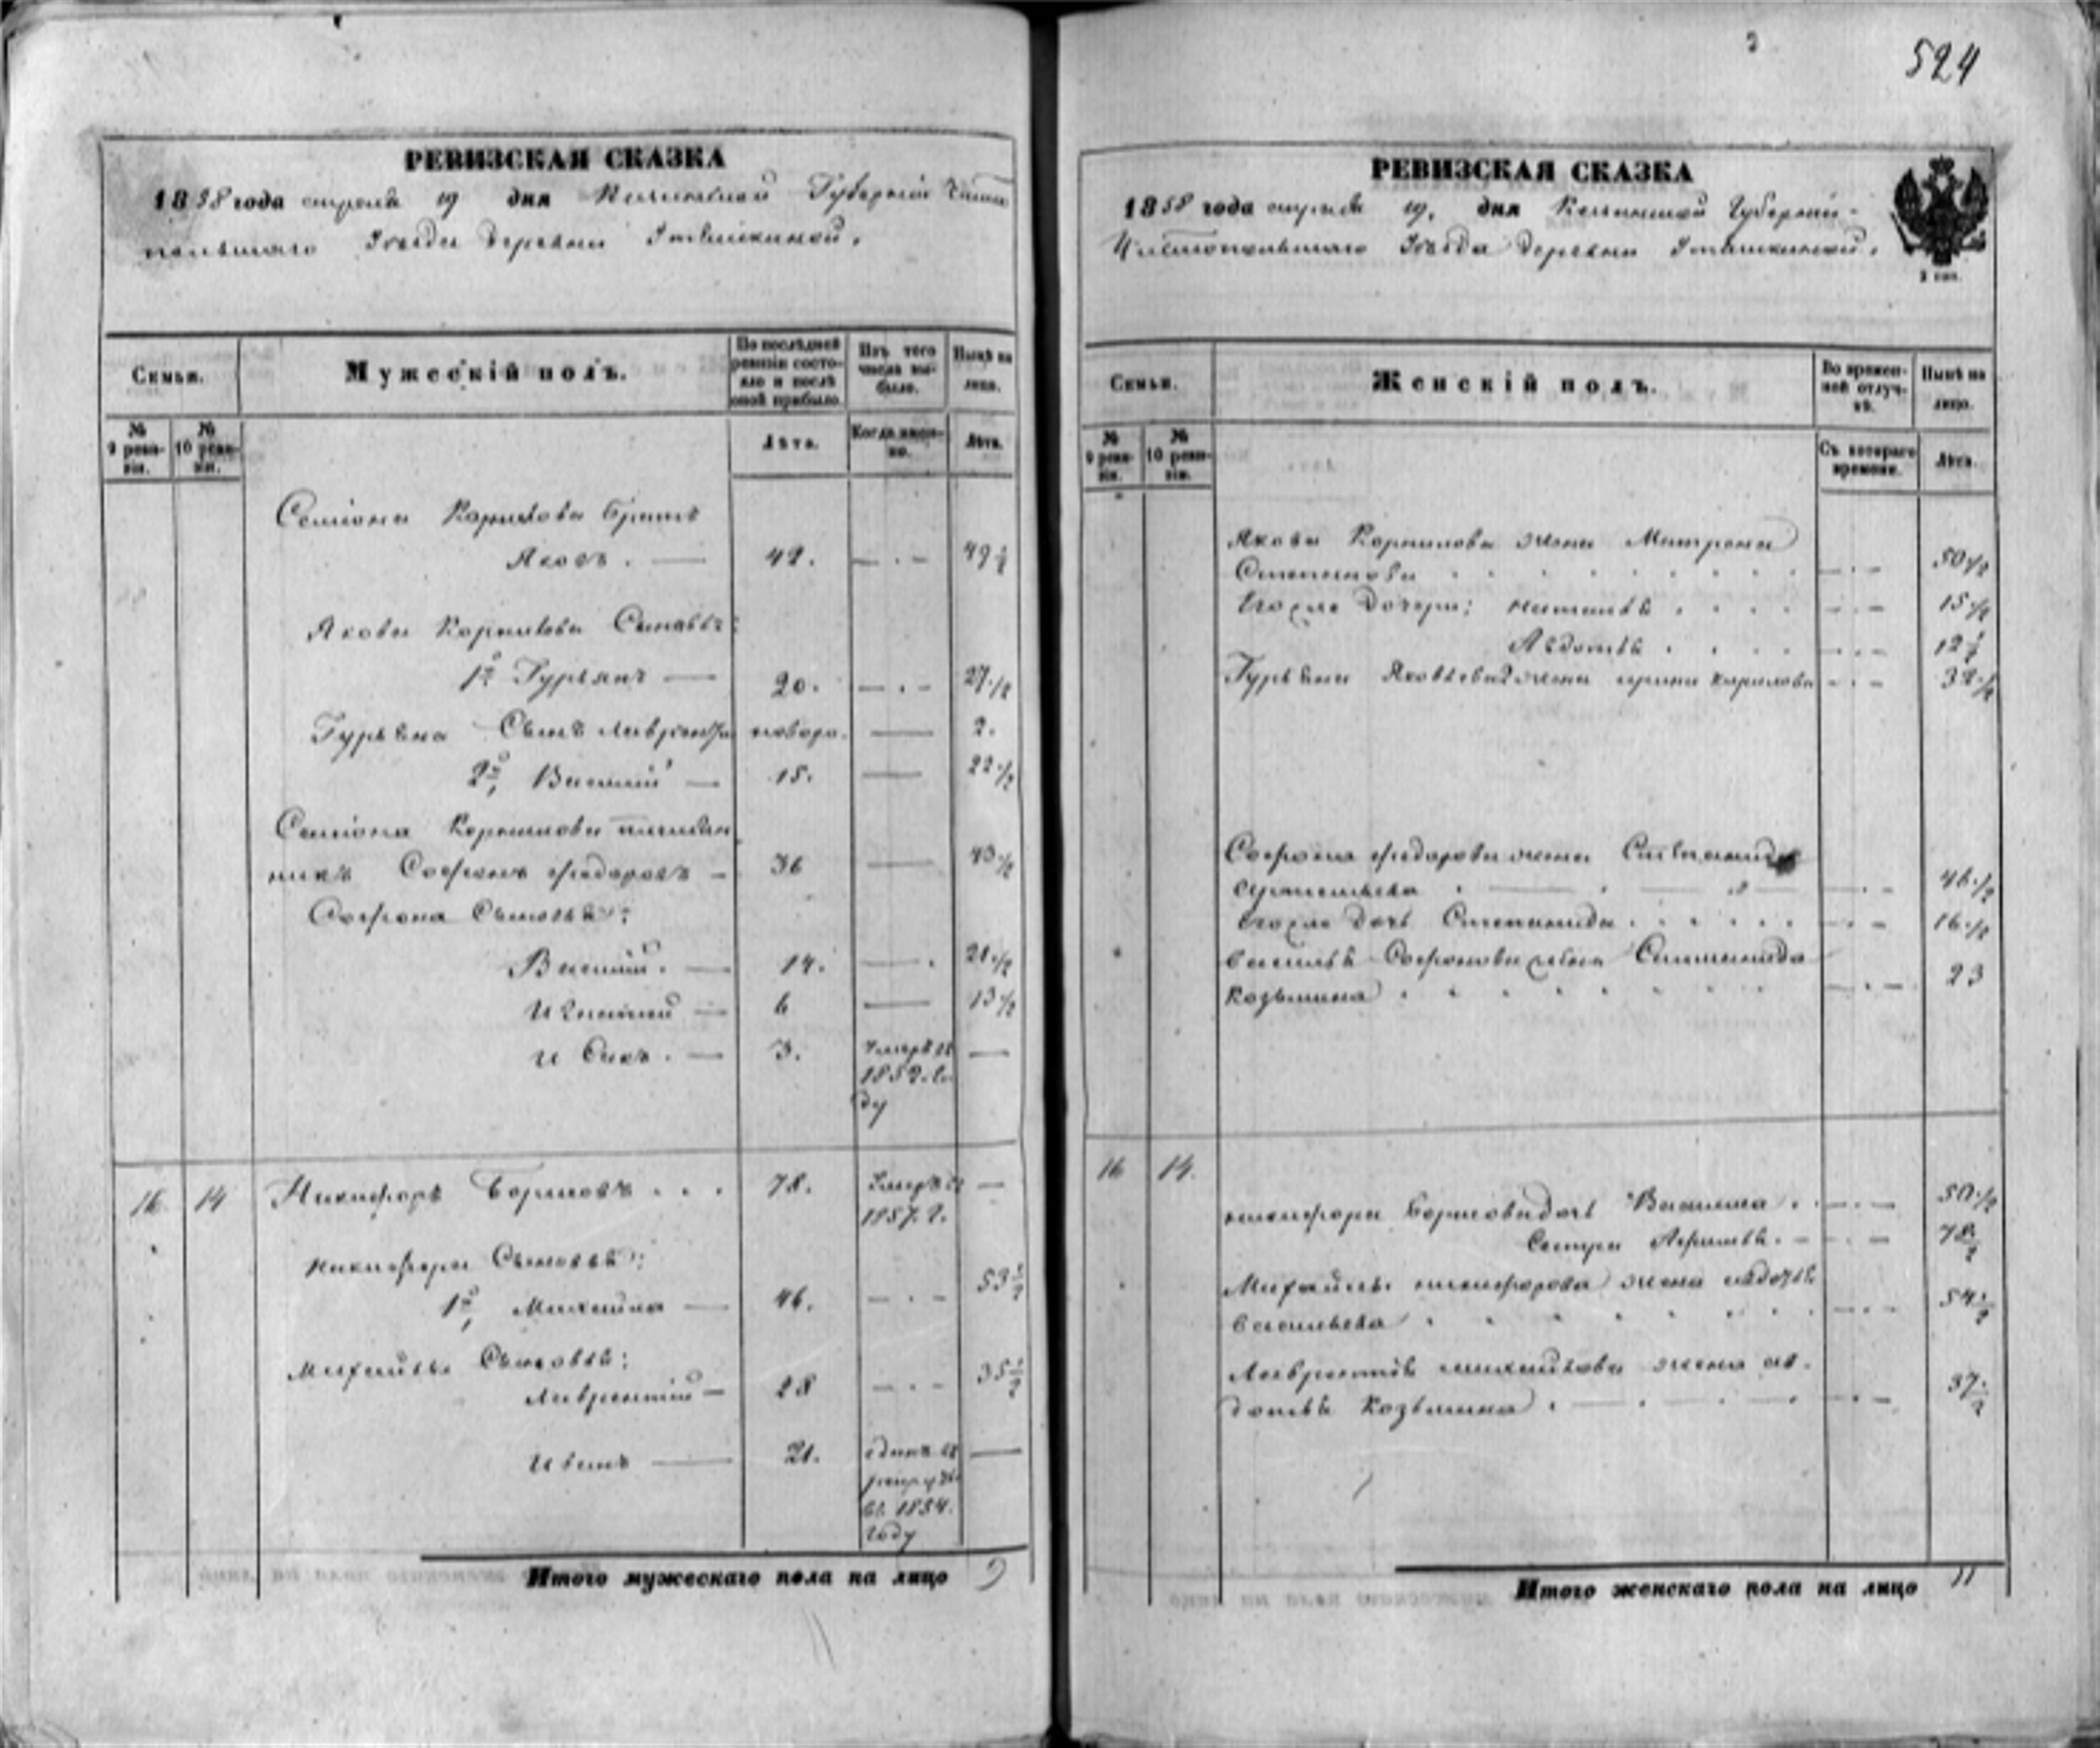 524
РЕВИЗСКАЯ СКАЗКА
1858 года апреля 19 дня Казанской Губернии Чисто
польскаго Уезда Деревни
Семьи.
Мужескій полъ.
По послѣдней ревизіи состояло и послѣ оной прибыло.
Изъ того числа выбыло.
Нынѣ на лицо.
№ 9 ревизіи.
№ 10 ревизіи.
Лѣта.
Когда именно.
Лѣта.
Семіона Корнилова братъ
Яковъ . — 42. — . — 49 ½
Якова Корнилова Сыновья:
1й Гурьянъ — 20. — . — 27 ½
Гурьяна Сынъ Лаврентій новоро. — 2.
2й, Василій — 15. — 22 ½
Семіона Корнилова племян
никъ Софронъ Федоровъ — 36 — 43 ½
Софрона Сыновья:
Василій. — 14. — . 21 ½
— 6 — 13 ½
и — 3. Умеръ въ 1852. го
ду —
16 14 Никифоръ Борисовъ . . . 78. Умеръ въ —
1857. г.
Никифора Сыновья:
1й, Михайла — 46. — . — 53 ½
Михайлы Сыновья:
Лаврентій — 28 — . — 35 ½
Иванъ — 21. отданъ въ —
рекруты
въ 1854.
году
Итого мужескаго пола на лицо 9
РЕВИЗСКАЯ СКАЗКА
1858 года апреля 19, дня Казанской Губернии
Чистопольскаго Уезда Деревни
2 коп.
Семьи.
Женскій полъ.
Во временной отлучкѣ.
Нынѣ на лицо.
№ 9 ревизіи.
№ 10 ревизіи.
Съ котораго времени.
Лѣта.
Якова Корнилова жена Матрена
Степанова — . — 50 ½
Ихъ дочери: Наталья . . . — . — 15 ½
Авдотья . . . . — . — 12 ½
Гурьяна Яковлева 2 жена Ирина Кирилова — . — 32 ½
Софрона Федорова жена
— . — 46 ½
дочь Степанида . . . . . . — . — 16 ½
Василья Софронова жена
Козьмина . . . . . . . — . — 23
16 14.
Никифора Борисова дочь Василиса . . — . — 50 ½
Сестра — . — 78 ½
Михайлы Никифорова жена Авдотья
Васильева . . . . . . . — . — 54 ½
Лаврентія Михайлова жена Ав-
дотья Козьмина . — . — . — — . — 37 ½
Итого женскаго пола на лицо 11